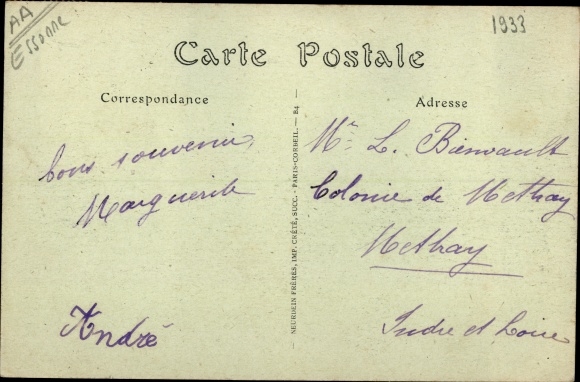 AA
Essonne
1933
Carte Postale
Correspondance
Adresse
bons souvenirs,
Marguerite
André
NEURDEIN FRÈRES, IMP. CRÉTÉ, SUCC. - PARIS-CORBEIL. - 84
Mr L. Bienvault
Colonie de Mettray
Mettray
Indre et Loire